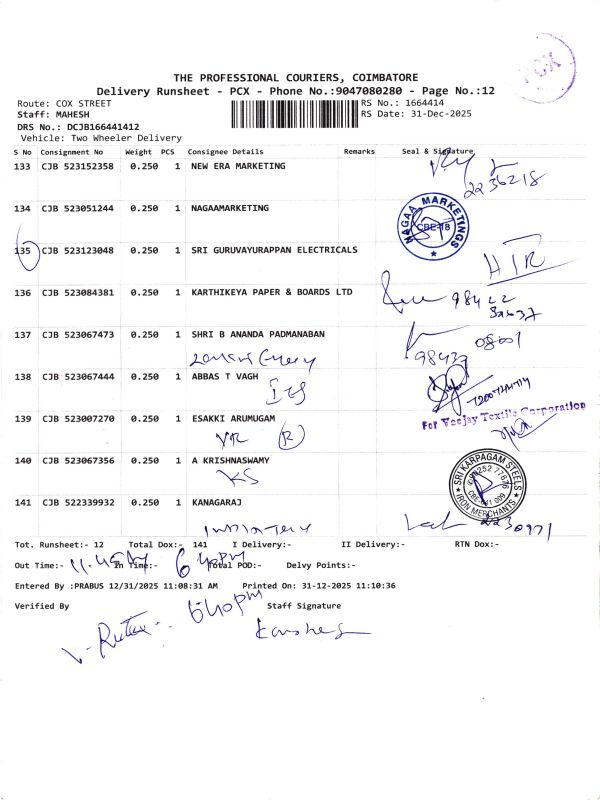 PCX
THE PROFESSIONAL COURIERS, COIMBATORE
Delivery Runsheet - PCX - Phone No.:9047080280 - Page No.:12
Route: COX STREET
RS No.: 1664414
Staff: MAHESH
RS Date: 31-Dec-2025
DRS No.: DCJB166441412
Vehicle: Two Wheeler Delivery
S No Consignment No Weight PCS Consignee Details Remarks Seal & Signature
133 CJB 523152358 0.250 1 NEW ERA MARKETING
2236218
134 CJB 523051244 0.250 1 NAGAAMARKETING
NAGAA MARKETINGS
CBE-18
135 CJB 523123048 0.250 1 SRI GURUVAYURAPPAN ELECTRICALS
136 CJB 523084381 0.250 1 KARTHIKEYA PAPER & BOARDS LTD
98422
137 CJB 523067473 0.250 1 SHRI B ANANDA PADMANABAN
98437 08001
138 CJB 523067444 0.250 1 ABBAS T VAGH
For Veejay Textile Corporation
139 CJB 523007270 0.250 1 ESAKKI ARUMUGAM
VR (R)
140 CJB 523067356 0.250 1 A KRISHNASWAMY
KS
SRI KARPAGAM STEELS
IRON MERCHANTS
141 CJB 522339932 0.250 1 KANAGARAJ
2230971
Tot. Runsheet:- 12 Total Dox:- 141 I Delivery:- II Delivery:- RTN Dox:-
Out Time:- 11.45 In Time:- 640pm Total POD:- Delvy Points:-
Entered By :PRABUS 12/31/2025 11:08:31 AM Printed On: 31-12-2025 11:10:36
640pm
Verified By Staff Signature